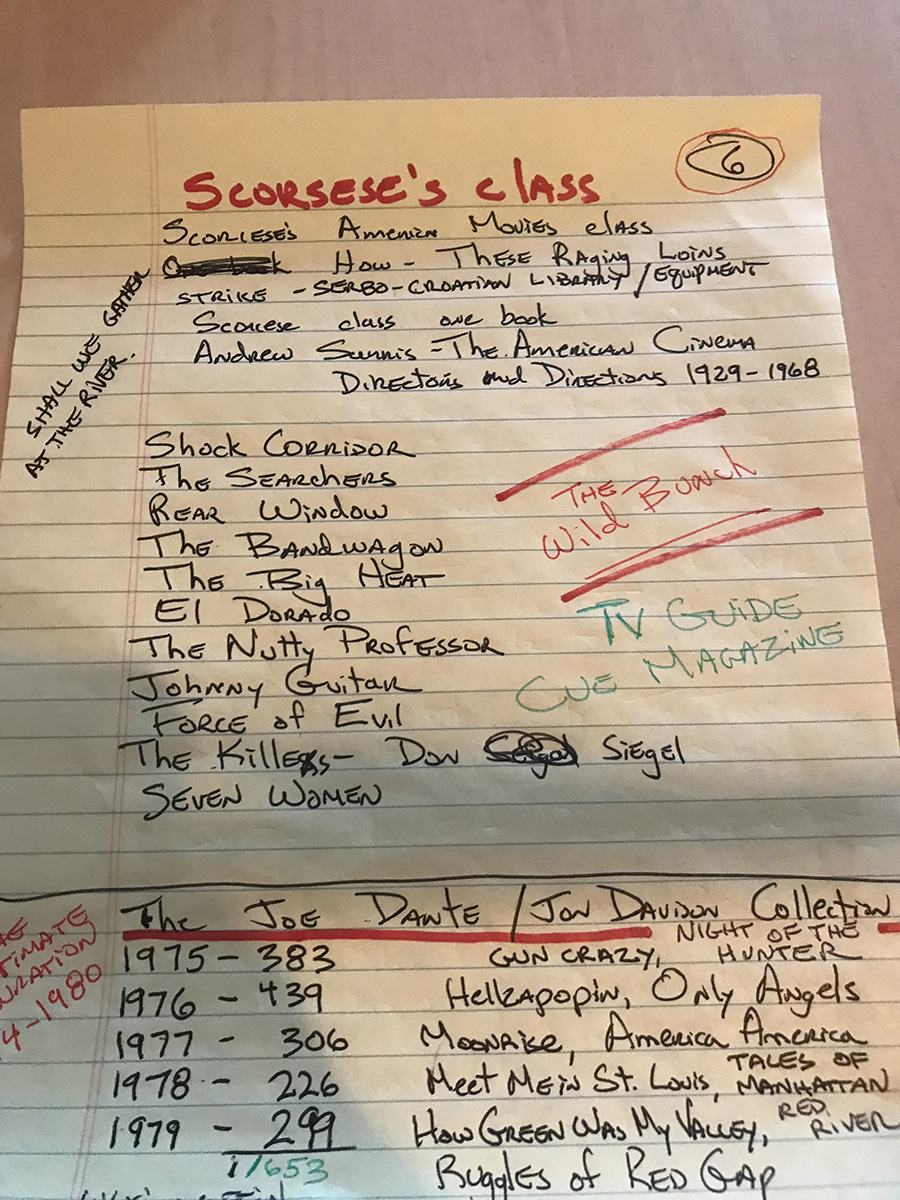 6
Scorsese's class
Scorcese's American Movies class
How - These Raging Loins
Strike - Serbo-Croatian Library / Equipment
Scorcese class one book
Andrew Sarris - The American Cinema
Directors and Directions 1929-1968
Shall we gather
at the river.
Shock Corridor
The Searchers
Rear Window
The Bandwagon
The Big Heat
El Dorado
The Nutty Professor
Johnny Guitar
Force of Evil
The Killers - Don Siegel
Seven Women
The
Wild Bunch
TV Guide
Cue Magazine
The Joe Dante / Jon Davison Collection
1975 - 383 Gun Crazy, Night of the Hunter
1976 - 439 Hellzapopin, Only Angels
1977 - 306 Moonrise, America America
1978 - 226 Meet Me in St. Louis, Tales of Manhattan
1979 - 299 How Green Was My Valley, Red River
1/653 Ruggles of Red Gap
4-1980